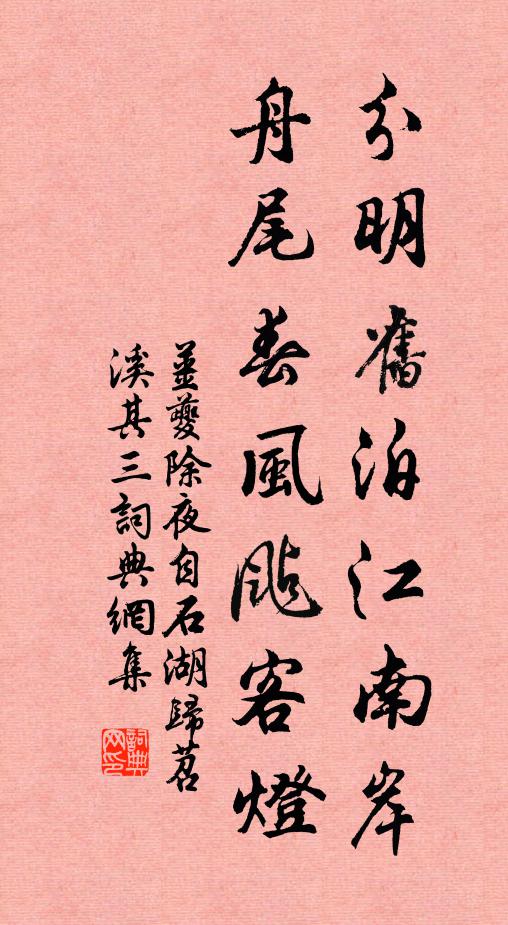 分明舊泊江南岸
舟尾春風颭客燈
薑夔除夜自石湖歸苕
溪其三詞典網集
詞典
网印